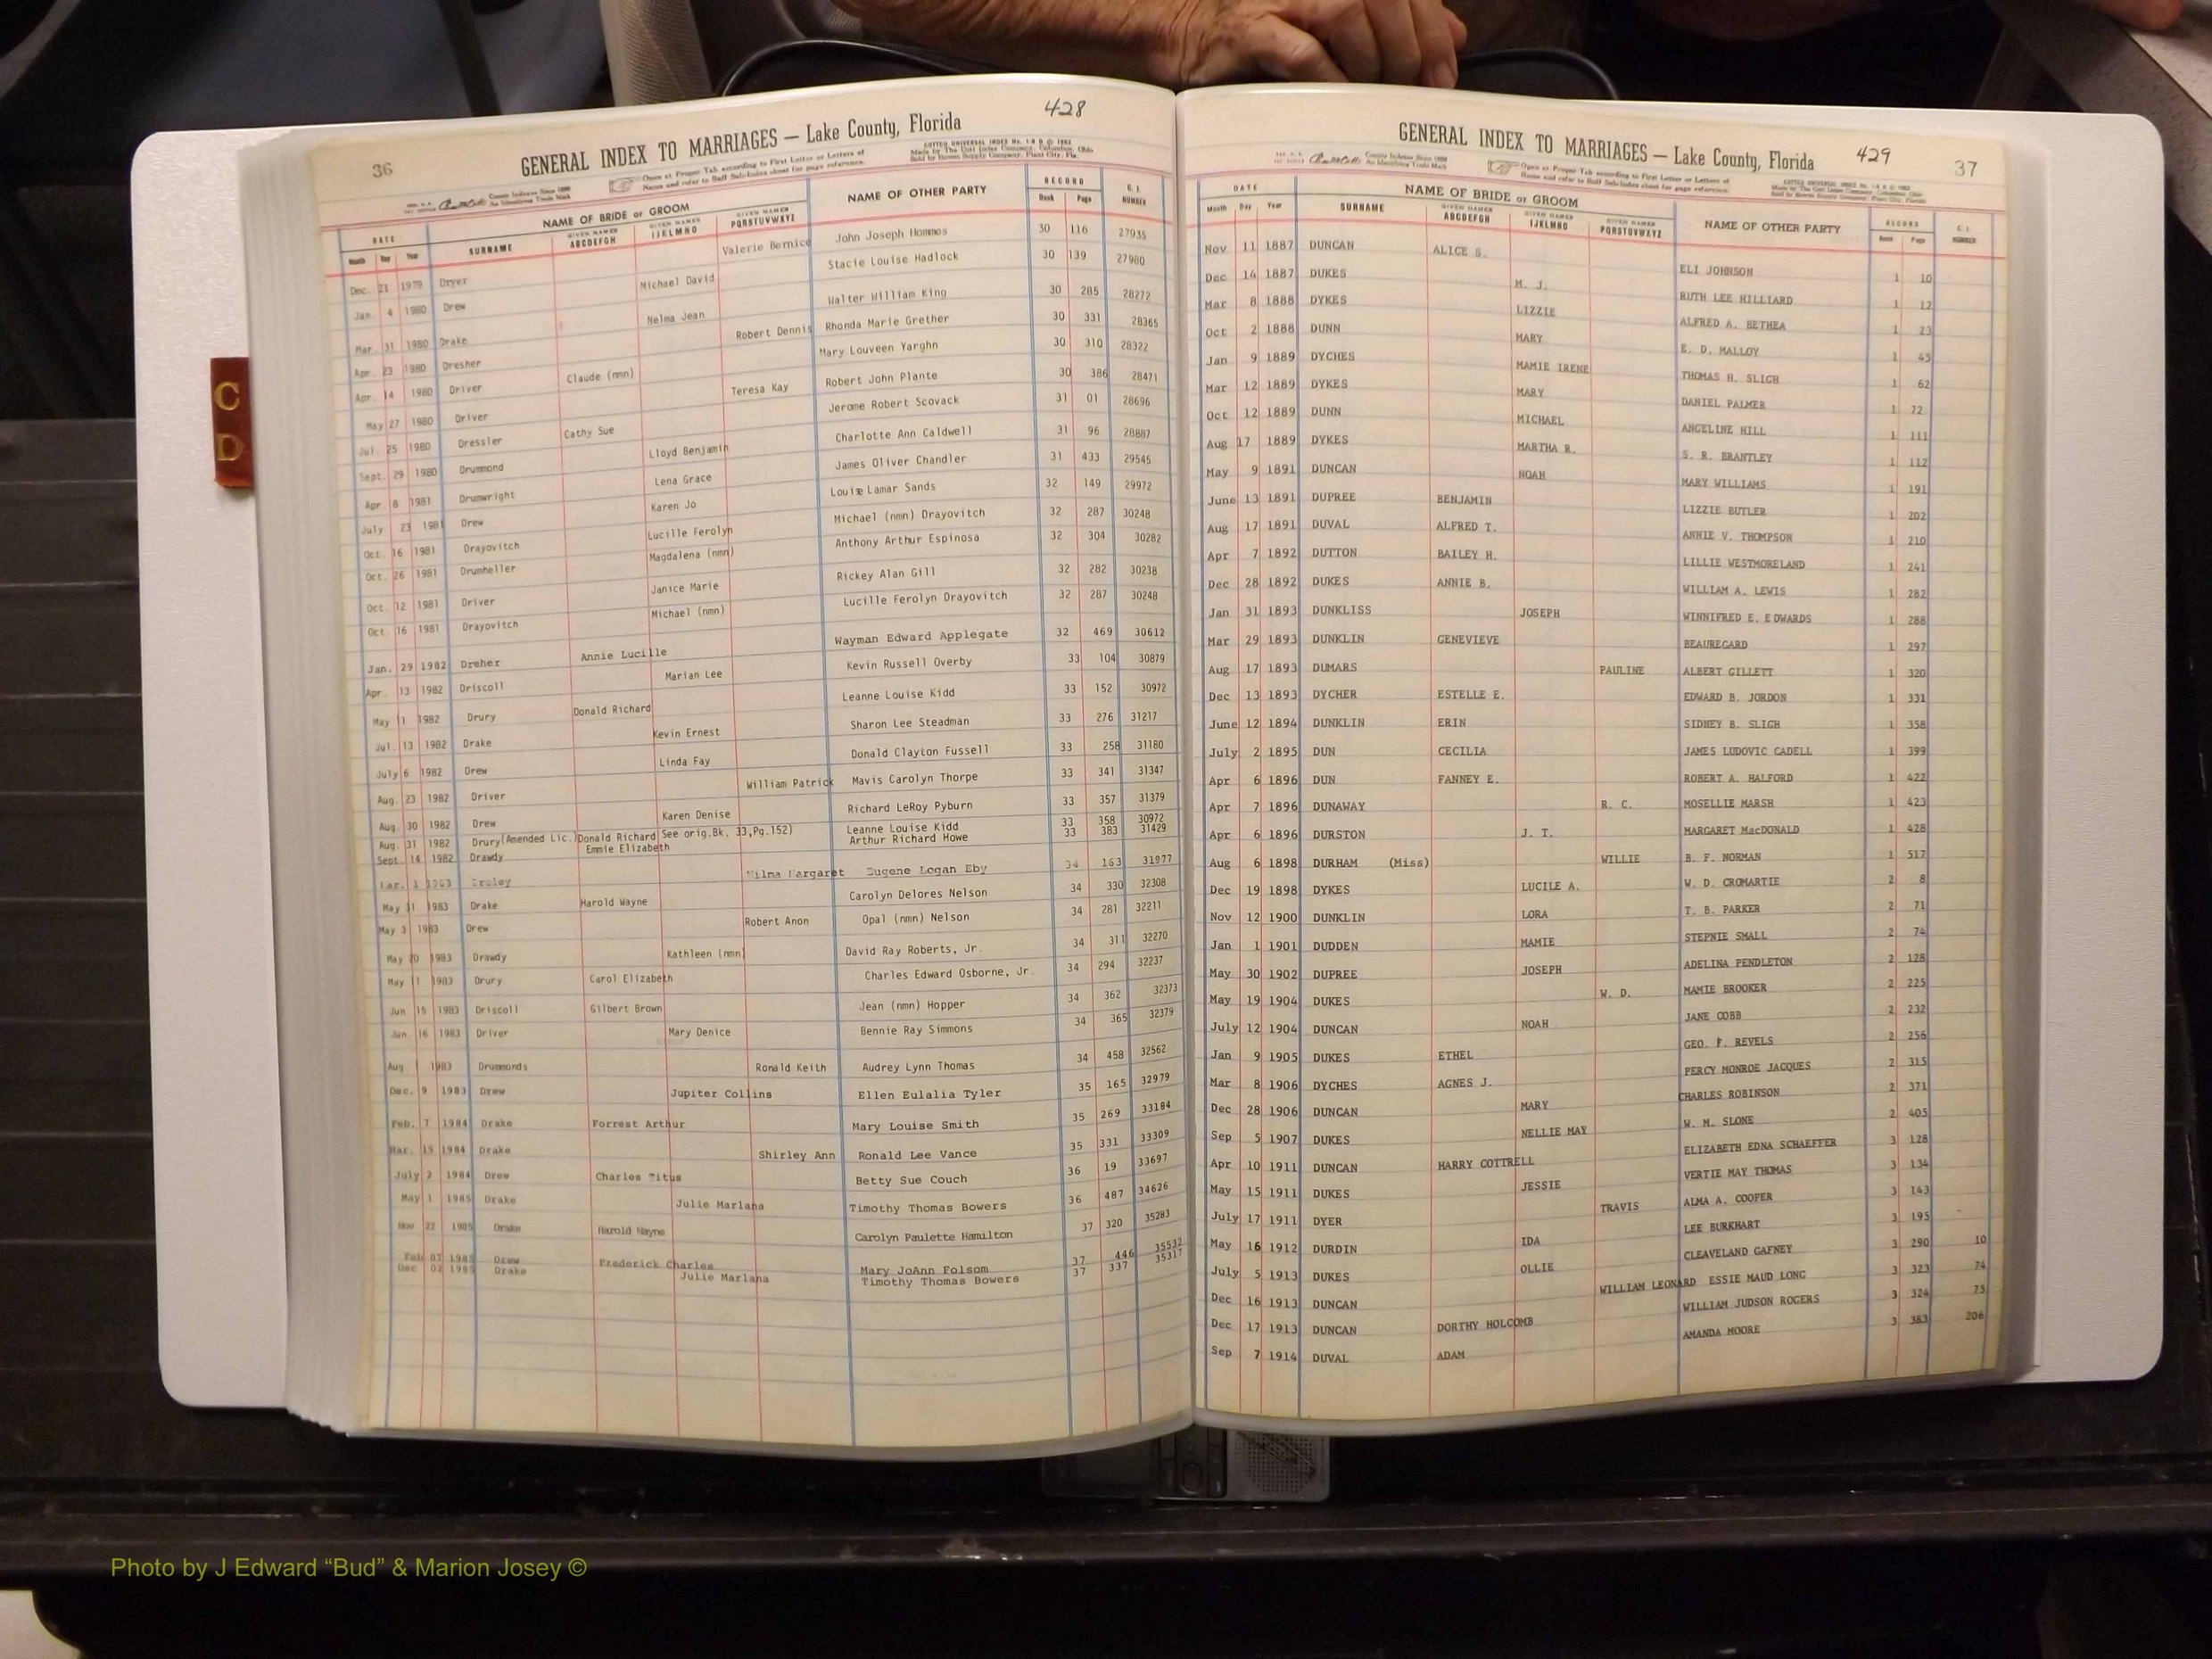 36
428
GENERAL INDEX TO MARRIAGES — Lake County, Florida
Open at Proper Tab according to First Letter or Letters of
Name and refer to Buff Sub-Index sheet for page reference.
DATE NAME OF BRIDE or GROOM NAME OF OTHER PARTY RECORD C. I. NUMBER
Month Day Year SURNAME GIVEN NAMES ABCDEFGH GIVEN NAMES IJKLMNO GIVEN NAMES PQRSTUVWXYZ Book Page
Dec. 21 1979 Dryer Valerie Bernice John Joseph Hommes 30 116 27935
Jan. 4 1980 Drew Michael David Stacie Louise Hadlock 30 139 27980
Mar. 31 1980 Drake Nelma Jean Walter William King 30 285 28272
Apr. 23 1980 Dresher Robert Dennis Rhonda Marie Grether 30 331 28365
Apr. 14 1980 Driver Claude (nmn) Mary Louveen Yarghn 30 310 28322
May 27 1980 Driver Teresa Kay Robert John Plante 30 386 28471
Jul. 25 1980 Dressler Cathy Sue Jerome Robert Scovack 31 01 28696
Sept. 29 1980 Drummond Lloyd Benjamin Charlotte Ann Caldwell 31 96 28887
Apr 8 1981 Drumwright Lena Grace James Oliver Chandler 31 433 29545
July 23 1981 Drew Karen Jo Louie Lamar Sands 32 149 29972
Oct. 16 1981 Drayovitch Lucille Ferolyn Michael (nmn) Drayovitch 32 287 30248
Oct. 26 1981 Drumheller Magdalena (nmn) Anthony Arthur Espinosa 32 304 30282
Oct. 12 1981 Driver Janice Marie Rickey Alan Gill 32 282 30238
Oct. 16 1981 Drayovitch Michael (nmn) Lucille Ferolyn Drayovitch 32 287 30248
Jan. 29 1982 Dreher Annie Lucille Wayman Edward Applegate 32 469 30612
Apr. 13 1982 Driscoll Marian Lee Kevin Russell Overby 33 104 30879
May 1 1982 Drury Donald Richard Leanne Louise Kidd 33 152 30972
Jul. 13 1982 Drake Kevin Ernest Sharon Lee Steadman 33 276 31217
July 6 1982 Drew Linda Fay Donald Clayton Fussell 33 258 31180
Aug. 23 1982 Driver William Patrick Mavis Carolyn Thorpe 33 341 31347
Aug. 30 1982 Drew Karen Denise Richard LeRoy Pyburn 33 357 31379
Aug. 31 1982 Drury(Amended Lic.)Donald Richard See orig.Bk. 33,Pg.152) Leanne Louise Kidd 33 358 30972
Sept. 14 1982 Drawdy Emmie Elizabeth Arthur Richard Howe 33 383 31429
Mar. 1 1983 Wilma Margaret Eugene Logan Eby 34 163 31977
May 31 1983 Drake Harold Wayne Carolyn Delores Nelson 34 330 32308
May 3 1983 Drew Robert Anon Opal (nmn) Nelson 34 281 32211
May 20 1983 Drawdy Kathleen (nmn) David Ray Roberts, Jr. 34 311 32270
May 11 1983 Drury Carol Elizabeth Charles Edward Osborne, Jr. 34 294 32237
Jun 15 1983 Driscoll Gilbert Brown Jean (nmn) Hopper 34 362 32373
Jun. 16 1983 Driver Mary Denice Bennie Ray Simmons 34 365 32379
Aug 1 1983 Drummonds Ronald Keith Audrey Lynn Thomas 34 458 32562
Dec. 9 1983 Drew Jupiter Collins Ellen Eulalia Tyler 35 165 32979
Feb. 7 1984 Drake Forrest Arthur Mary Louise Smith 35 269 33184
Mar. 15 1984 Drake Shirley Ann Ronald Lee Vance 35 331 33309
July 2 1984 Drew Charles Titus Betty Sue Couch 36 19 33697
May 1 1985 Drake Julie Marlana Timothy Thomas Bowers 36 487 34626
Nov 22 1985 Drake Harold Wayne Carolyn Paulette Hamilton 37 320 35283
Feb 07 Drew Frederick Charles Mary JoAnn Folsom 37 446 35532
Dec 02 1985 Drake Julie Marlana Timothy Thomas Bowers 37 337 35317
GENERAL INDEX TO MARRIAGES — Lake County, Florida
429
37
Open at Proper Tab according to First Letter or Letters of
Name and refer to Buff Sub-Index sheet for page reference.
DATE NAME OF BRIDE or GROOM NAME OF OTHER PARTY RECORD C. I. NUMBER
Month Day Year SURNAME GIVEN NAMES ABCDEFGH GIVEN NAMES IJKLMNO GIVEN NAMES PQRSTUVWXYZ Book Page
Nov 11 1887 DUNCAN ALICE S. ELI JOHNSON 1 10
Dec 14 1887 DUKES M. J. RUTH LEE HILLIARD 1 12
Mar 8 1888 DYKES LIZZIE ALFRED A. BETHEA 1 23
Oct 2 1888 DUNN MARY E. D. MALLOY 1 45
Jan 9 1889 DYCHES MAMIE IRENE THOMAS H. SLIGH 1 62
Mar 12 1889 DYKES MARY DANIEL PALMER 1 72
Oct 12 1889 DUNN MICHAEL ANGELINE HILL 1 111
Aug 17 1889 DYKES MARTHA R. S. R. BRANTLEY 1 112
May 9 1891 DUNCAN NOAH MARY WILLIAMS 1 191
June 13 1891 DUPREE BENJAMIN LIZZIE BUTLER 1 202
Aug 17 1891 DUVAL ALFRED T. ANNIE V. THOMPSON 1 210
Apr 7 1892 DUTTON BAILEY H. LILLIE WESTMORELAND 1 241
Dec 28 1892 DUKES ANNIE B. WILLIAM A. LEWIS 1 282
Jan 31 1893 DUNKLISS JOSEPH WINNIFRED E. EDWARDS 1 288
Mar 29 1893 DUNKLIN GENEVIEVE BEAUREGARD 1 297
Aug 17 1893 DUMARS PAULINE ALBERT GILLETT 1 320
Dec 13 1893 DYCHER ESTELLE E. EDWARD B. JORDON 1 331
June 12 1894 DUNKLIN ERIN SIDNEY B. SLIGH 1 358
July 2 1895 DUN CECILIA JAMES LUDOVIC CADELL 1 399
Apr 6 1896 DUN FANNEY E. ROBERT A. HALFORD 1 422
Apr 7 1896 DUNAWAY R. C. MOSELLIE MARSH 1 423
Apr 6 1896 DURSTON J. T. MARGARET MacDONALD 1 428
Aug 6 1898 DURHAM (Miss) WILLIE B. F. NORMAN 1 517
Dec 19 1898 DYKES LUCILE A. W. D. CROMARTIE 2 8
Nov 12 1900 DUNKLIN LORA T. B. PARKER 2 71
Jan 1 1901 DUDDEN MAMIE STEPNIE SMALL 2 74
May 30 1902 DUPREE JOSEPH ADELINA PENDLETON 2 128
May 19 1904 DUKES W. D. MAMIE BROOKER 2 225
July 12 1904 DUNCAN NOAH JANE COBB 2 232
Jan 9 1905 DUKES ETHEL GEO. F. REVELS 2 256
Mar 8 1906 DYCHES AGNES J. PERCY MONROE JACQUES 2 315
Dec 28 1906 DUNCAN MARY CHARLES ROBINSON 2 371
Sep 5 1907 DUKES NELLIE MAY W. M. SLONE 2 405
Apr 10 1911 DUNCAN HARRY COTTRELL ELIZABETH EDNA SCHAEFFER 3 128
May 15 1911 DUKES JESSIE VERTIE MAY THOMAS 3 134
July 17 1911 DYER TRAVIS ALMA A. COOPER 3 143
May 16 1912 DURDIN IDA LEE BURKHART 3 195
July 5 1913 DUKES OLLIE CLEAVELAND GAFNEY 3 290 10
Dec 16 1913 DUNCAN WILLIAM LEONARD ESSIE MAUD LONG 3 323 74
Dec 17 1913 DUNCAN DORTHY HOLCOMB WILLIAM JUDSON ROGERS 3 324 75
Sep 7 1914 DUVAL ADAM AMANDA MOORE 3 383 206
C
D
Photo by J Edward “Bud” & Marion Josey ©